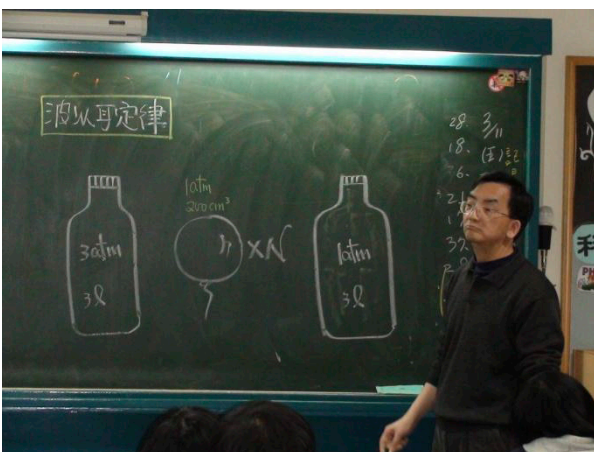 波以耳定律
3atm
3ℓ
1atm
200cm³
n
×N
1atm
3ℓ
28. 3/11
18. (五)記
6.
科